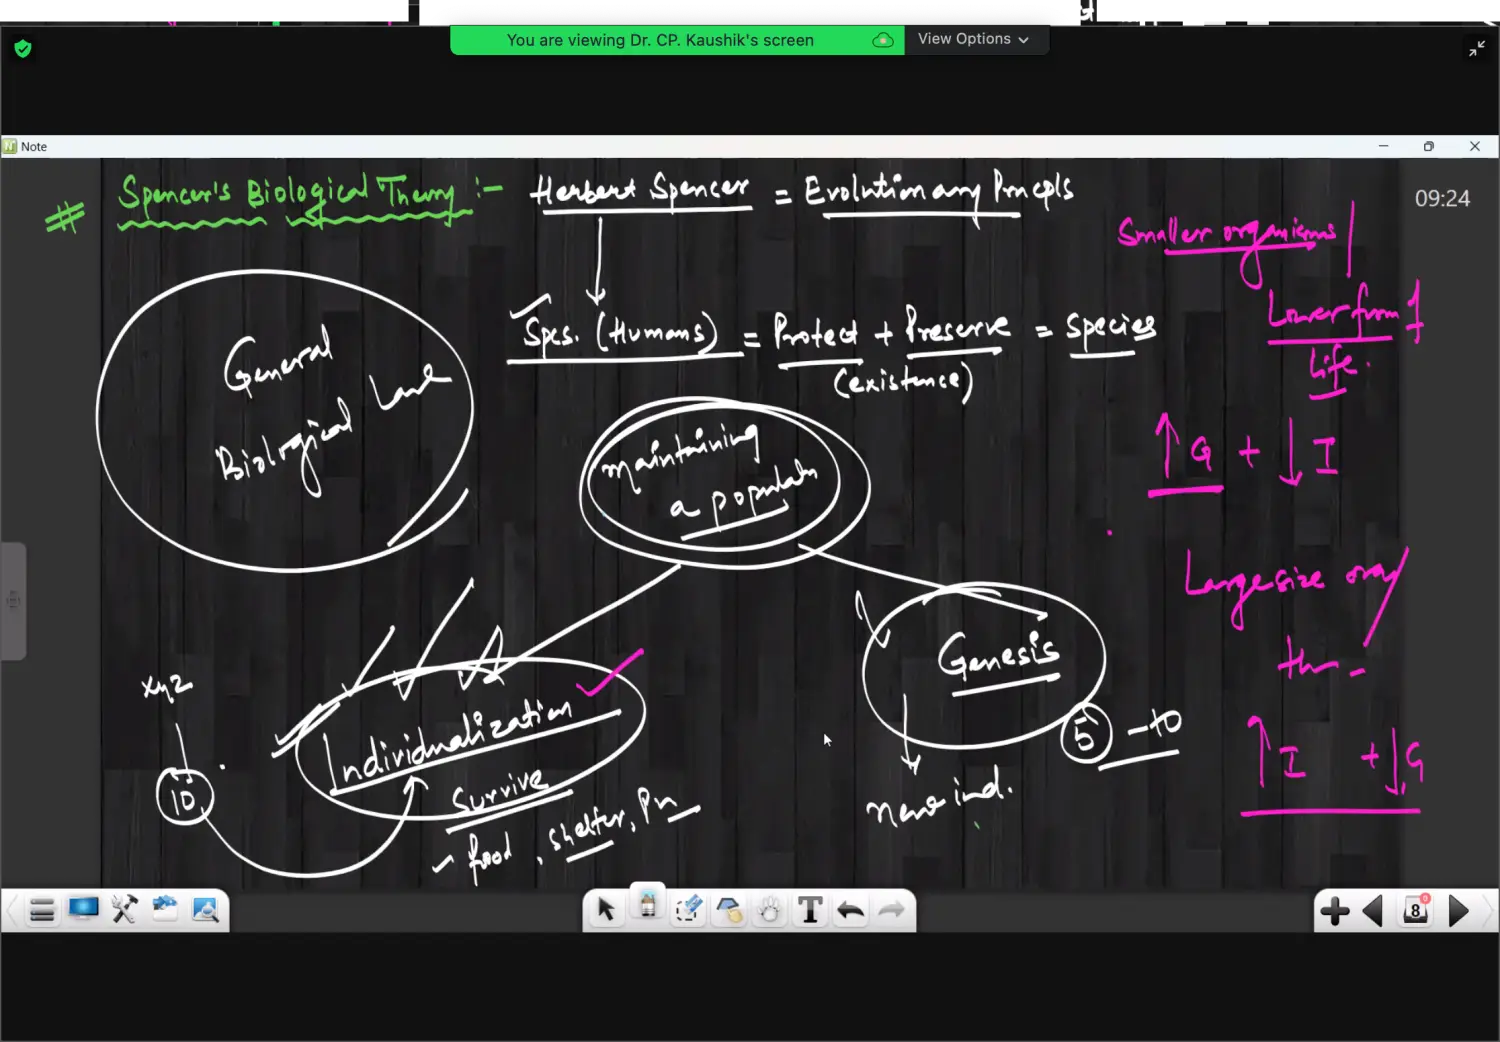 You are viewing Dr. CP. Kaushik's screen
View Options
Note
09:24
# Spencer's Biological Theory :- Herbert Spencer = Evolutionary Prncpls
Smaller organisms
Lower from of
Life.
Spcs. (Humans) = Protect + Preserve = Species
(existence)
General
Biological Law
maintaining
a populatn
↑ G + ↓ I
Large size org
Genesis
xyz
10
Individualization
Survive
food, shelter, Pn
5 -to
new ind.
↑ I + ↓ G
T
8